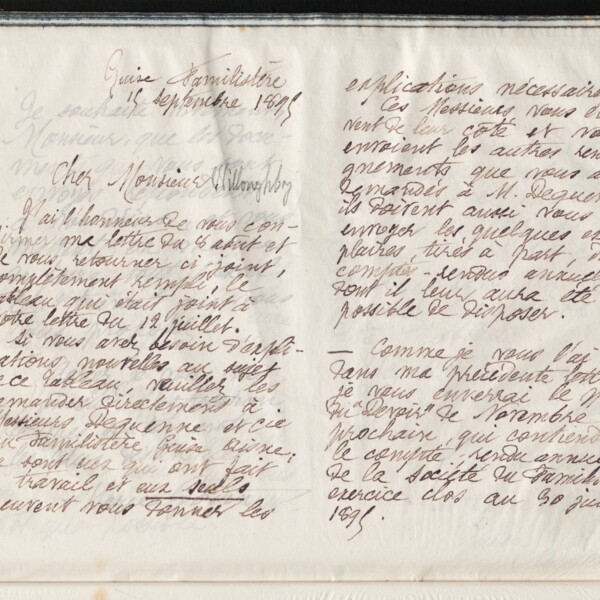 Guise Familistère
15 septembre 1895
Cher Monsieur Willoughby
J'ai l'honneur de vous con-
firmer ma lettre du 8 août et
de vous retourner ci joint,
complètement rempli, le
tableau qui était joint à
votre lettre du 12 juillet.
Si vous avez besoin d'expli-
cations nouvelles au sujet
de ce tableau, veuillez les
demander directement à
Messieurs Dequenne et Cie
au Familistère Guise Aisne;
ce sont eux qui ont fait
travail et eux seuls
peuvent vous donner les
explications nécessaires
Ces Messieurs vous
vent de leur côté et
envoient les autres ren
gnements que vous a
demandés à M. Deque
ils doivent aussi vous
envoyer les quelques ex
plaires, tirés à part, d
compte-rendus annuel
dont il leur aura été
possible de disposer.
— Comme je vous l'ai
dans ma précédente lett
je vous enverrai le
du "Devoir" de Novembre
prochain, qui contiend
le compte-rendu annue
de la Société du Famili
exercice clos au 30 jui
1895.